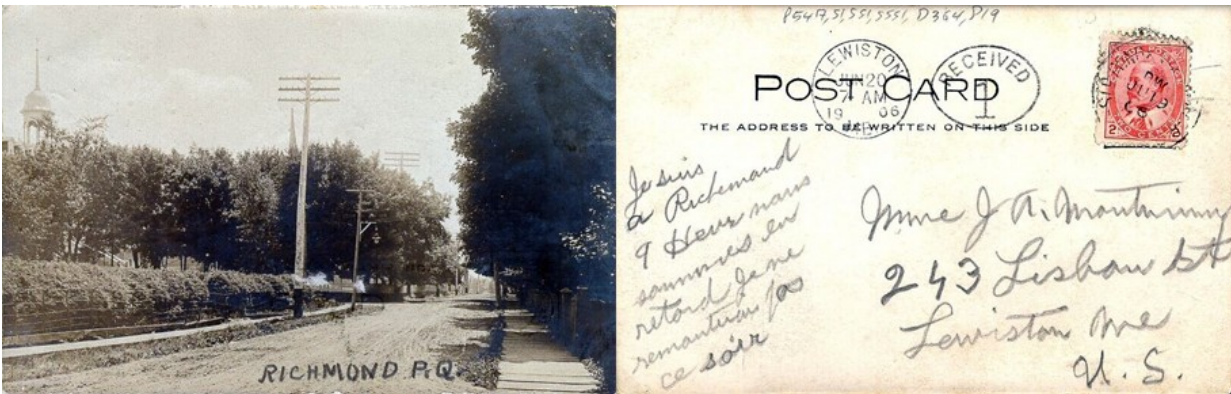 RICHMOND P.Q.
P547, S1, SS1, SSS1, D364, D19
LEWISTON
JUN 20
7 AM
19 06
RECEIVED
1
POST CARD
THE ADDRESS TO BE WRITTEN ON THIS SIDE
2
Je suis
a Richemond
9 Heur nous
sommes en
retard Je ne
pas
ce soir
Mme J A.
243 Lisbon St
Lewiston Me
U. S.